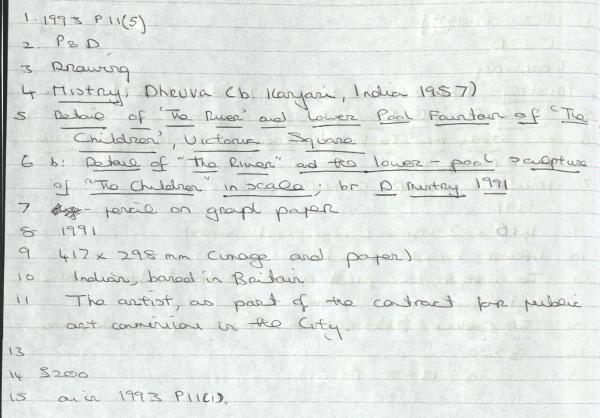 1. 1993 P11(5)
2 P&D
3 Drawing
4 Mistry, Dhruva (b. Kanjari, India 1957)
5 Detail of 'The River' and Lower Pool Fountain of 'The
Children', Victoria Square
6 b: Detail of "The River" and the lower-pool sculpture
of "The Children" in scale; br D Mistry 1991
7 pencil on graph paper
8 1991
9 417 x 298 mm (image and paper)
10 Indian, based in Britain
11 The artist, as part of the contract for public
art commission in the City.
13
14 5200
15 as in 1993 P11(1).